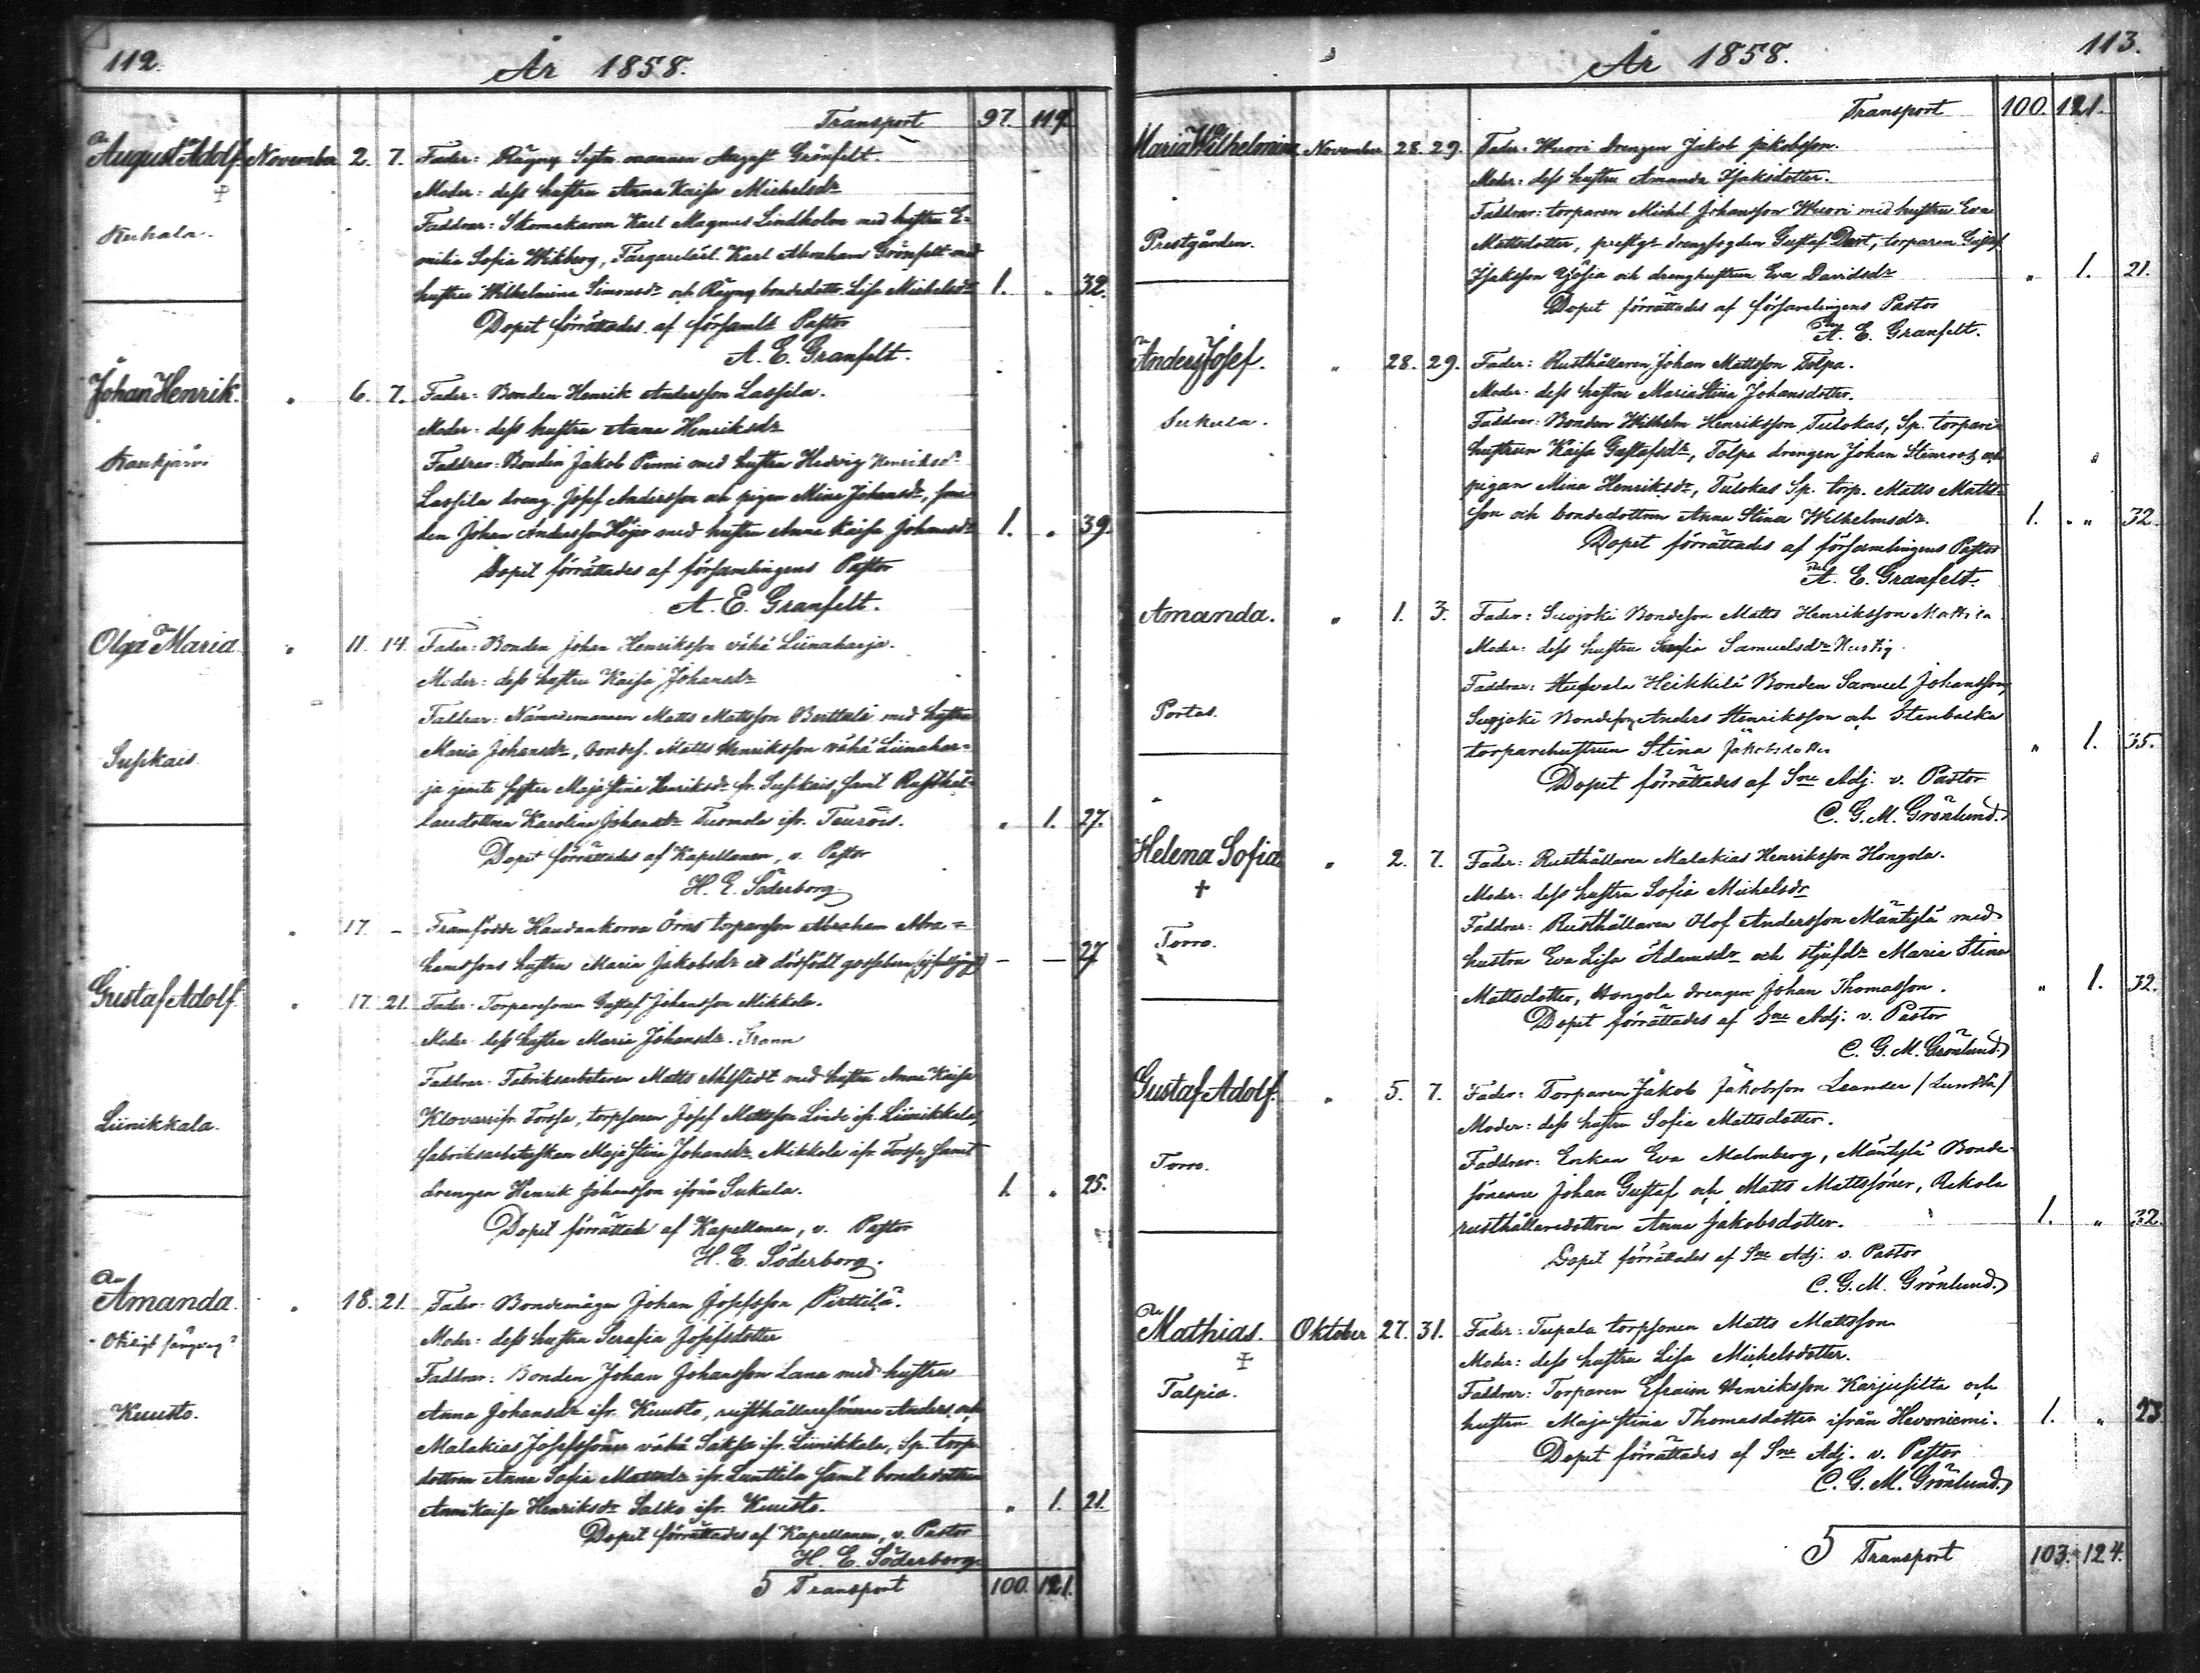 112.
År 1858.
Transport 97. 119.
August Adolf November 2. 7. Fader: Räyny August Grönfelt.
Moder: dess hustru Anna Kaisa Michelsdr
Kuhala. Faddrar: Skomakaren Karl Magnus Lindholm med hustru E-
milia Sofia Wikberg, Karl Abraham Grönfelt med
hustru Wilhelmina Simonsdr och Räyny bondedottr Lisa Michelsdr 1. " 32.
Dopet förrättades af församls Pastor
A. E. Granfelt.
Johan Henrik. " 6. 7. Fader: Bonden Henrik Andersson Lassila.
Moder: dess hustru Anna Henriksdr
Kaukjärvi Faddrar: Bonden Jakob Penni med hustru Hedvig Henriksdr
Lassila dreng. Josef Andersson och pigan Mina Johansdr,
den Johan Andersson Höjer med hustru Anna Kaisa Johansdr 1. " 39.
Dopet förrättades af församlingens Pastor
A. E. Granfelt.
Olga Maria " 11. 14. Fader: Bonden Johan Henriksson vähä Liinaharja.
Moder: dess hustru Kaisa Johansdr
Faddrar: Nämndemannen Matts Mattsson Berttula med hustru
Susikais. Maria Johansdr, bondes. Matts Henriksson vähä Liinahar-
ja jemte syster Maja Stina Henriksdr fr. Susikais, samt Rusthål-
laredottren Karolina Johansdr Tuomela ifr. Teuröis. " 1. 27.
Dopet förrättades af Kapellanen, v. Pastor
H. E. Söderborg
" 17. - Framfödde Haudankorva Örns torpareson Abraham Abra-
hamssons hustru Maria Jakobsdr ett dödfödt gossebarn — — 27
Gustaf Adolf. " 17. 21. Fader: Torparesonen Gustaf Johansson Mikkola.
Moder: dess hustru Maria Johansdr. Frann
Faddrar: Fabriksarbetaren Matts Ahlstedt med hustru Anna Kaisa
Liinikkala. Forssa, torpsonen Josef Mattsson Linde ifr. Liinikkala,
fabriksarbeterskan Maja Stina Johansdr Mikkola ifr. Forssa, samt
drengen Henrik Johansson ifrån Sukula. 1. " 25.
Dopet förrättades af Kapellanen, v. Pastor
H. E. Söderborg.
Amanda. " 18. 21. Fader: Bondemågen Johan Josefsson Pirttilä.
Moder: dess hustru Serafia Josefsdotter
Faddrar: Bonden Johan Johansson Lana med hustru
Kuusto. Anna Johansdr ifr. Kuusto, rusthållaresönerne Anders och
Malakias Josefssöner vähä Saksa ifr. Liinikkala, Sp. torp.
dottren Anna Sofia Mattsdr ifr. Lunttila samt bondedottren
Anna Kaisa Henriksdr Salko ifr. Kuusto. " 1. 21.
Dopet förrättades af Kapellanen, v. Pastor
H. E. Söderborg
5 Transport 100. 121.
113.
År 1858.
Transport 100. 121.
Maria Wilhelmina November 28. 29. Fader: Wuori drengen Jakob Jakobsson.
Moder: dess hustru Amanda Isaksdotter.
Faddrar: torparen Michel Johansson Wuori med hustru Eva
Prestgården. Mattsdotter, prestgs drengfogden Gustaf Dart, torparen Gustaf
Isaksson och drenghustrun Eva Davidsdr " 1. 21.
Dopet förrättades af församlingens Pastor
A. E. Granfelt.
Anders Josef. " 28. 29. Fader: Rusthållaren Johan Mattsson Tolpa.
Moder: dess hustru Maria Stina Johansdotter.
Sukula. Faddrar: Bonden Wilhelm Henriksson Tulokas, Sp. torpare-
hustrun Kaisa Gustafsdr, Tolpa drengen Johan Stenroos och
pigan Mina Henriksdr, Tulokas Sp. torp. Matts Matts-
son och bondedottren Anna Stina Wilhelmsdr. 1. " 32.
Dopet förrättades af församlingens Pastor
A. E. Granfelt.
Amanda. " 1. 3. Fader: Suojoki Bondeson Matts Henriksson Mattila
Moder: dess hustru Samuelsdr
Portas. Faddrar: Heikkilä Bonden Samuel Johansson,
Suojoki Bondeson Anders Henriksson och Stenbacka
torparehustrun Stina Jakobsdotter " 1. 35.
Dopet förrättades af Sne Adj. v. Pastor
C. G. M. Grönlund.
Helena Sofia " 2. 7. Fader: Rusthållaren Malakias Henriksson Hongola.
Moder: dess hustru Sofia Michelsdr
Torro. Faddrar: Rusthållaren Olof Andersson Mäntylä med
hustru Eva Lisa Adamsdr och styfdr Maria Stina
Mattsdotter, Hongola drengen Johan Thomasson. " 1. 32.
Dopet förrättades af Sne Adj. v. Pastor
C. G. M. Grönlund.
Gustaf Adolf. " 5. 7. Fader: Torparen Jakob Jakobsson Leander /Lundså/
Moder: dess hustru Sofia Mattsdotter.
Torro. Faddrar: Enkan Eva Malmberg, Mäntylä Bonde-
sönerne Johan Gustaf och Matts Mattssöner, Rekola
rusthållaredottren Anna Jakobsdotter. 1. " 32.
Dopet förrättades af Sne Adj. v. Pastor
C. G. M. Grönlund.
Mathias. Oktober 27. 31. Fader: Teepala torpsonen Matts Mattsson
Moder: dess hustru Lisa Michelsdotter.
Talpia. Faddrar: Torparen Efraim Henriksson Karjusilta och
hustru Maja Stina Thomasdotter ifrån Hevoniemi. 1. " 23
Dopet förrättades af Sne Adj. v. Pastor
C. G. M. Grönlund.
5 Transport 103. 124.